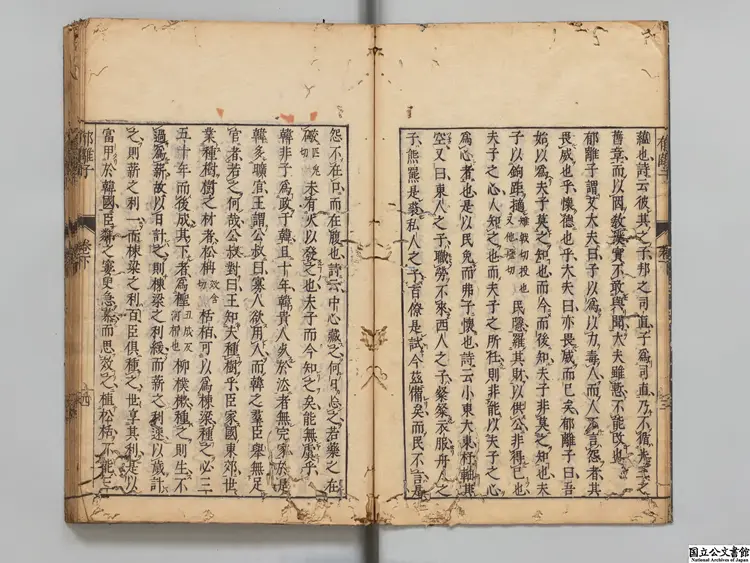 蘊也詩云彼其之子邦之司直子爲司直乃不循先王之
舊章而以因敎璞實不敢與聞大夫雖慙不能改也
郁離子謂艾大夫曰子以爲以力毒人而人不言怨者其
畏威也乎懷德也乎大夫曰亦畏威而已矣郁離子曰吾
始以爲夫子莫之知也而今而後知夫子非莫之知也夫
子以鉤距擿民隱羅其財以供公非得已也
夫子之心人知之也而夫子之所杜則非能以夫子之心
爲心者也是以民免而弗子懷也詩云小東大東杼軸其
空又曰東人之子職勞不來西人之子粲粲衣服舟人之
子熊羆是裘私人之子百僚是試今茲備矣而民不言是
怨不在口而在腹也詩云中心藏之何日忘之若藥之在
未有火以發之也夫子而今知之矣能無虞乎
韓非子爲政于韓且十年韓貴人死於法者無完家於是
韓多曠官王謂公叔曰寡人欲用人而韓之羣臣舉無足
官者若之何哉公叔對曰王知夫種樹乎臣家國東郊世
業種樹樹之材者松柟栝柏可以爲棟梁種之必三
五十年而後成其下者爲檉柳樸樕種之則生不
過爲薪故以日計之則棟梁之利緩而薪之利速以歲計
之則薪之利一而棟梁之利百臣俱種之世享其利是以
富甲於韓國臣鄰之窶更急慕而思效之植松栝不能三
郁離子
卷下
十四
国立公文書館
National Archives of Japan